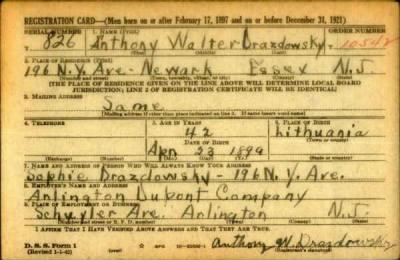 REGISTRATION CARD—(Men born on or after February 17, 1897 and on or before December 31, 1921)
SERIAL NUMBER 1. NAME (Print) ORDER NUMBER
826 Anthony Walter Drazdowsky
(First) (Middle) (Last)
2. PLACE OF RESIDENCE (Print)
196 N.Y. Ave. Newark Essex N.J.
(Number and street) (Town, township, village, or city) (County) (State)
[THE PLACE OF RESIDENCE GIVEN ON THE LINE ABOVE WILL DETERMINE LOCAL BOARD
JURISDICTION; LINE 2 OF REGISTRATION CERTIFICATE WILL BE IDENTICAL]
3. MAILING ADDRESS
Same
[Mailing address if other than place indicated on line 2. If same insert word same]
4. TELEPHONE 5. AGE IN YEARS 6. PLACE OF BIRTH
42 Lithuania
DATE OF BIRTH (Town or county)
Apr 23 1899
(Exchange) (Number) (Mo.) (Day) (Yr.) (State or country)
7. NAME AND ADDRESS OF PERSON WHO WILL ALWAYS KNOW YOUR ADDRESS
Sophie Drazdowsky - 196 N.Y. Ave.
8. EMPLOYER'S NAME AND ADDRESS
Arlington Dupont Company
9. PLACE OF EMPLOYMENT OR BUSINESS
Schuyler Ave. Arlington N.J.
(Number and street or R. F. D. number) (Town) (County) (State)
I AFFIRM THAT I HAVE VERIFIED ABOVE ANSWERS AND THAT THEY ARE TRUE.
D. S. S. Form 1
(Revised 1-1-42) Anthony W. Drazdowsky
(Registrant's signature)